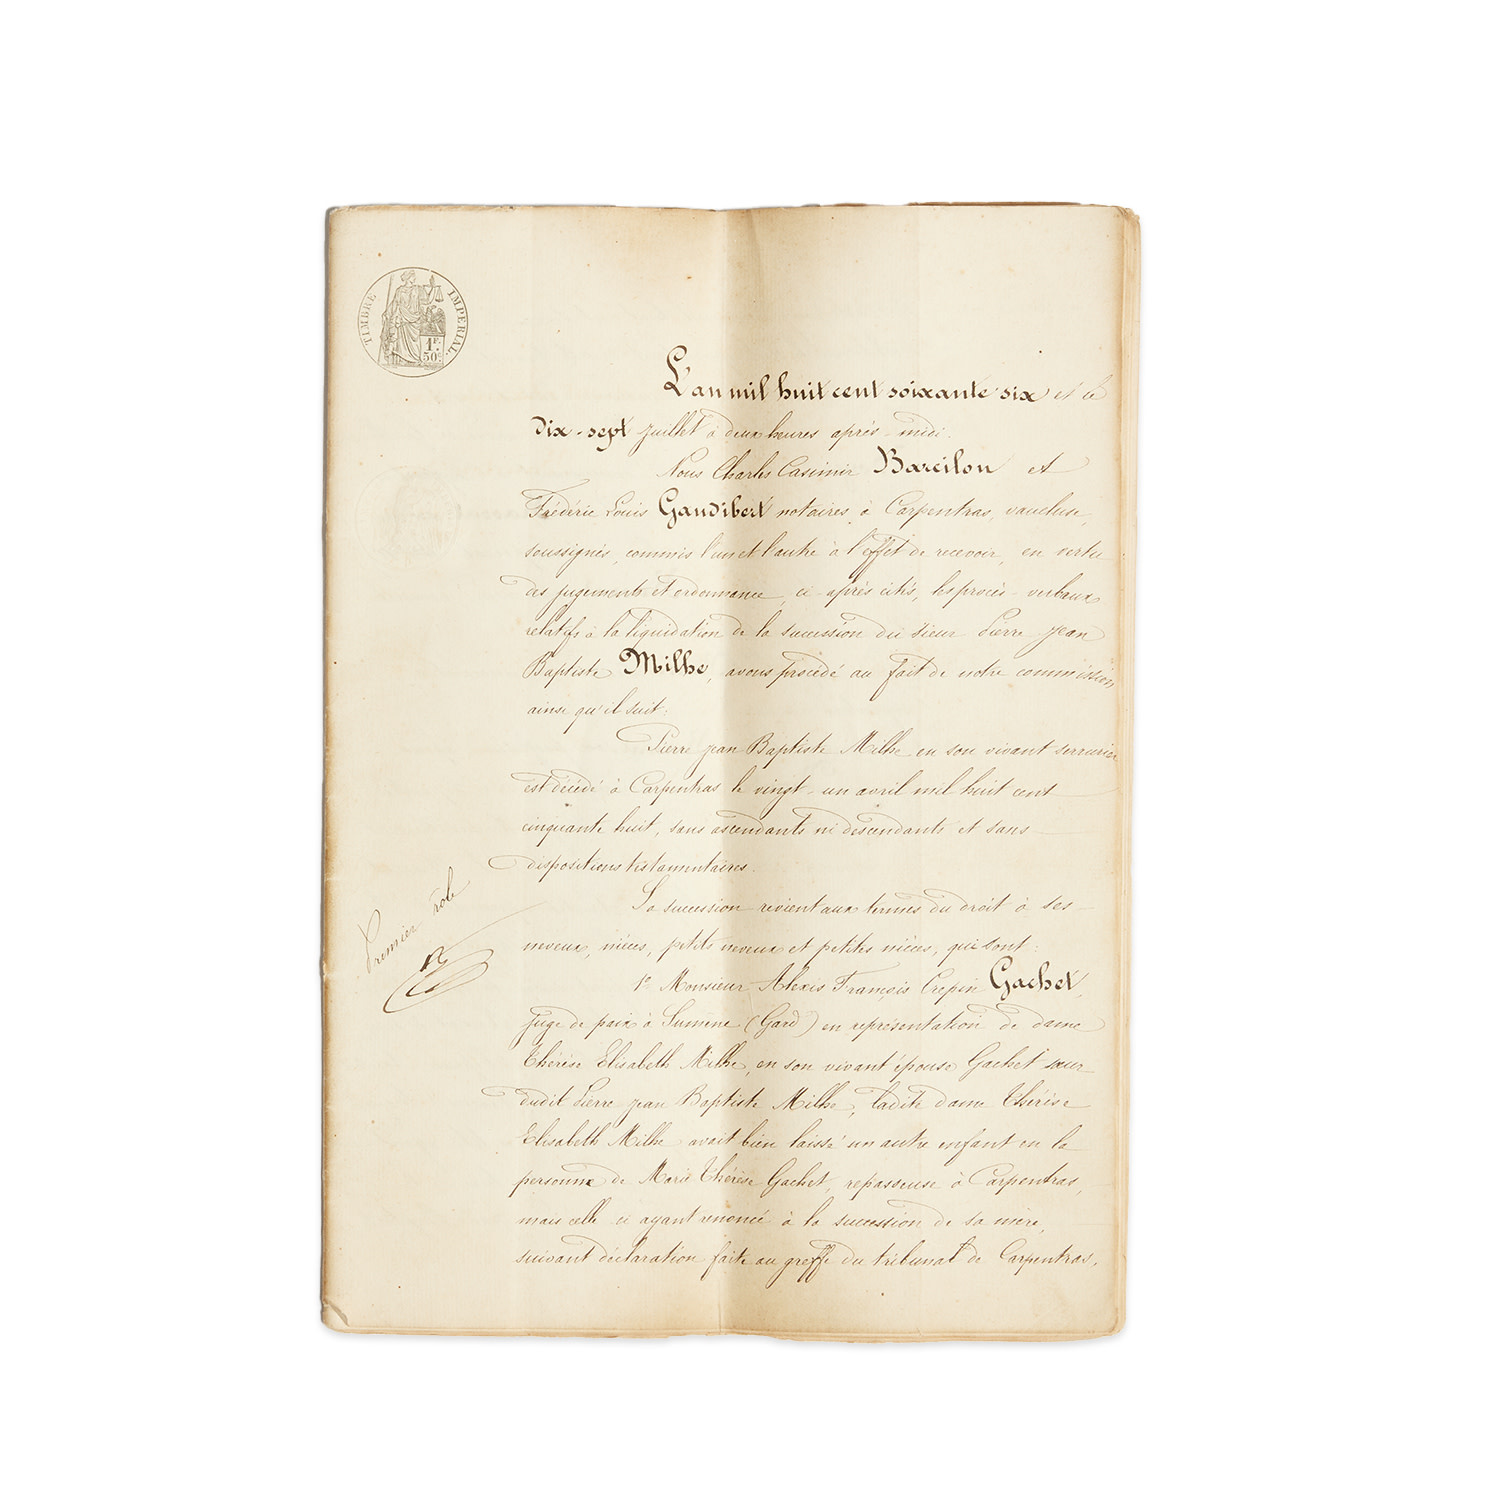 TIMBRE IMPERIAL.
1F.
50C.
L'an mil huit cent soixante six et le
Dix-sept juillet à deux heures après-midi.
Nous Charles Casimir Barcilon et
Frédéric Louis Gaudibert notaires à Carpentras, vaucluse,
soussignés, commis l'un et l'autre à l'effet de recevoir, en vertu
des jugements et ordonnance, ci-après cités, les procès-verbaux
relatifs à la liquidation de la succession du sieur Pierre jean
Baptiste Milhe, avons procédé au fait de notre commission
ainsi qu'il suit:
Pierre jean Baptiste Milhe en son vivant serrurier
est décédé à Carpentras le vingt-un avril mil huit cent
cinquante huit, sans ascendants ni descendants et sans
dispositions testamentaires.
La succession revient aux termes du droit à ses
neveux, nièces, petits neveux et petites nièces, qui sont:
1° Monsieur Alexis François Crepin Gachet,
juge de paix à Sumène (Gard) en représentation de dame
Thérèse Elisabeth Milhe, en son vivant épouse Gachet sœur
dudit Pierre jean Baptiste Milhe, ladite dame Thérèse
Elisabeth Milhe avait bien laissé un autre enfant en la
personne de Marie Thérèse Gachet, repasseuse à Carpentras,
mais celle ci ayant renoncé à la succession de sa mère,
suivant déclaration faite au greffe du tribunal de Carpentras,
Premier rôle